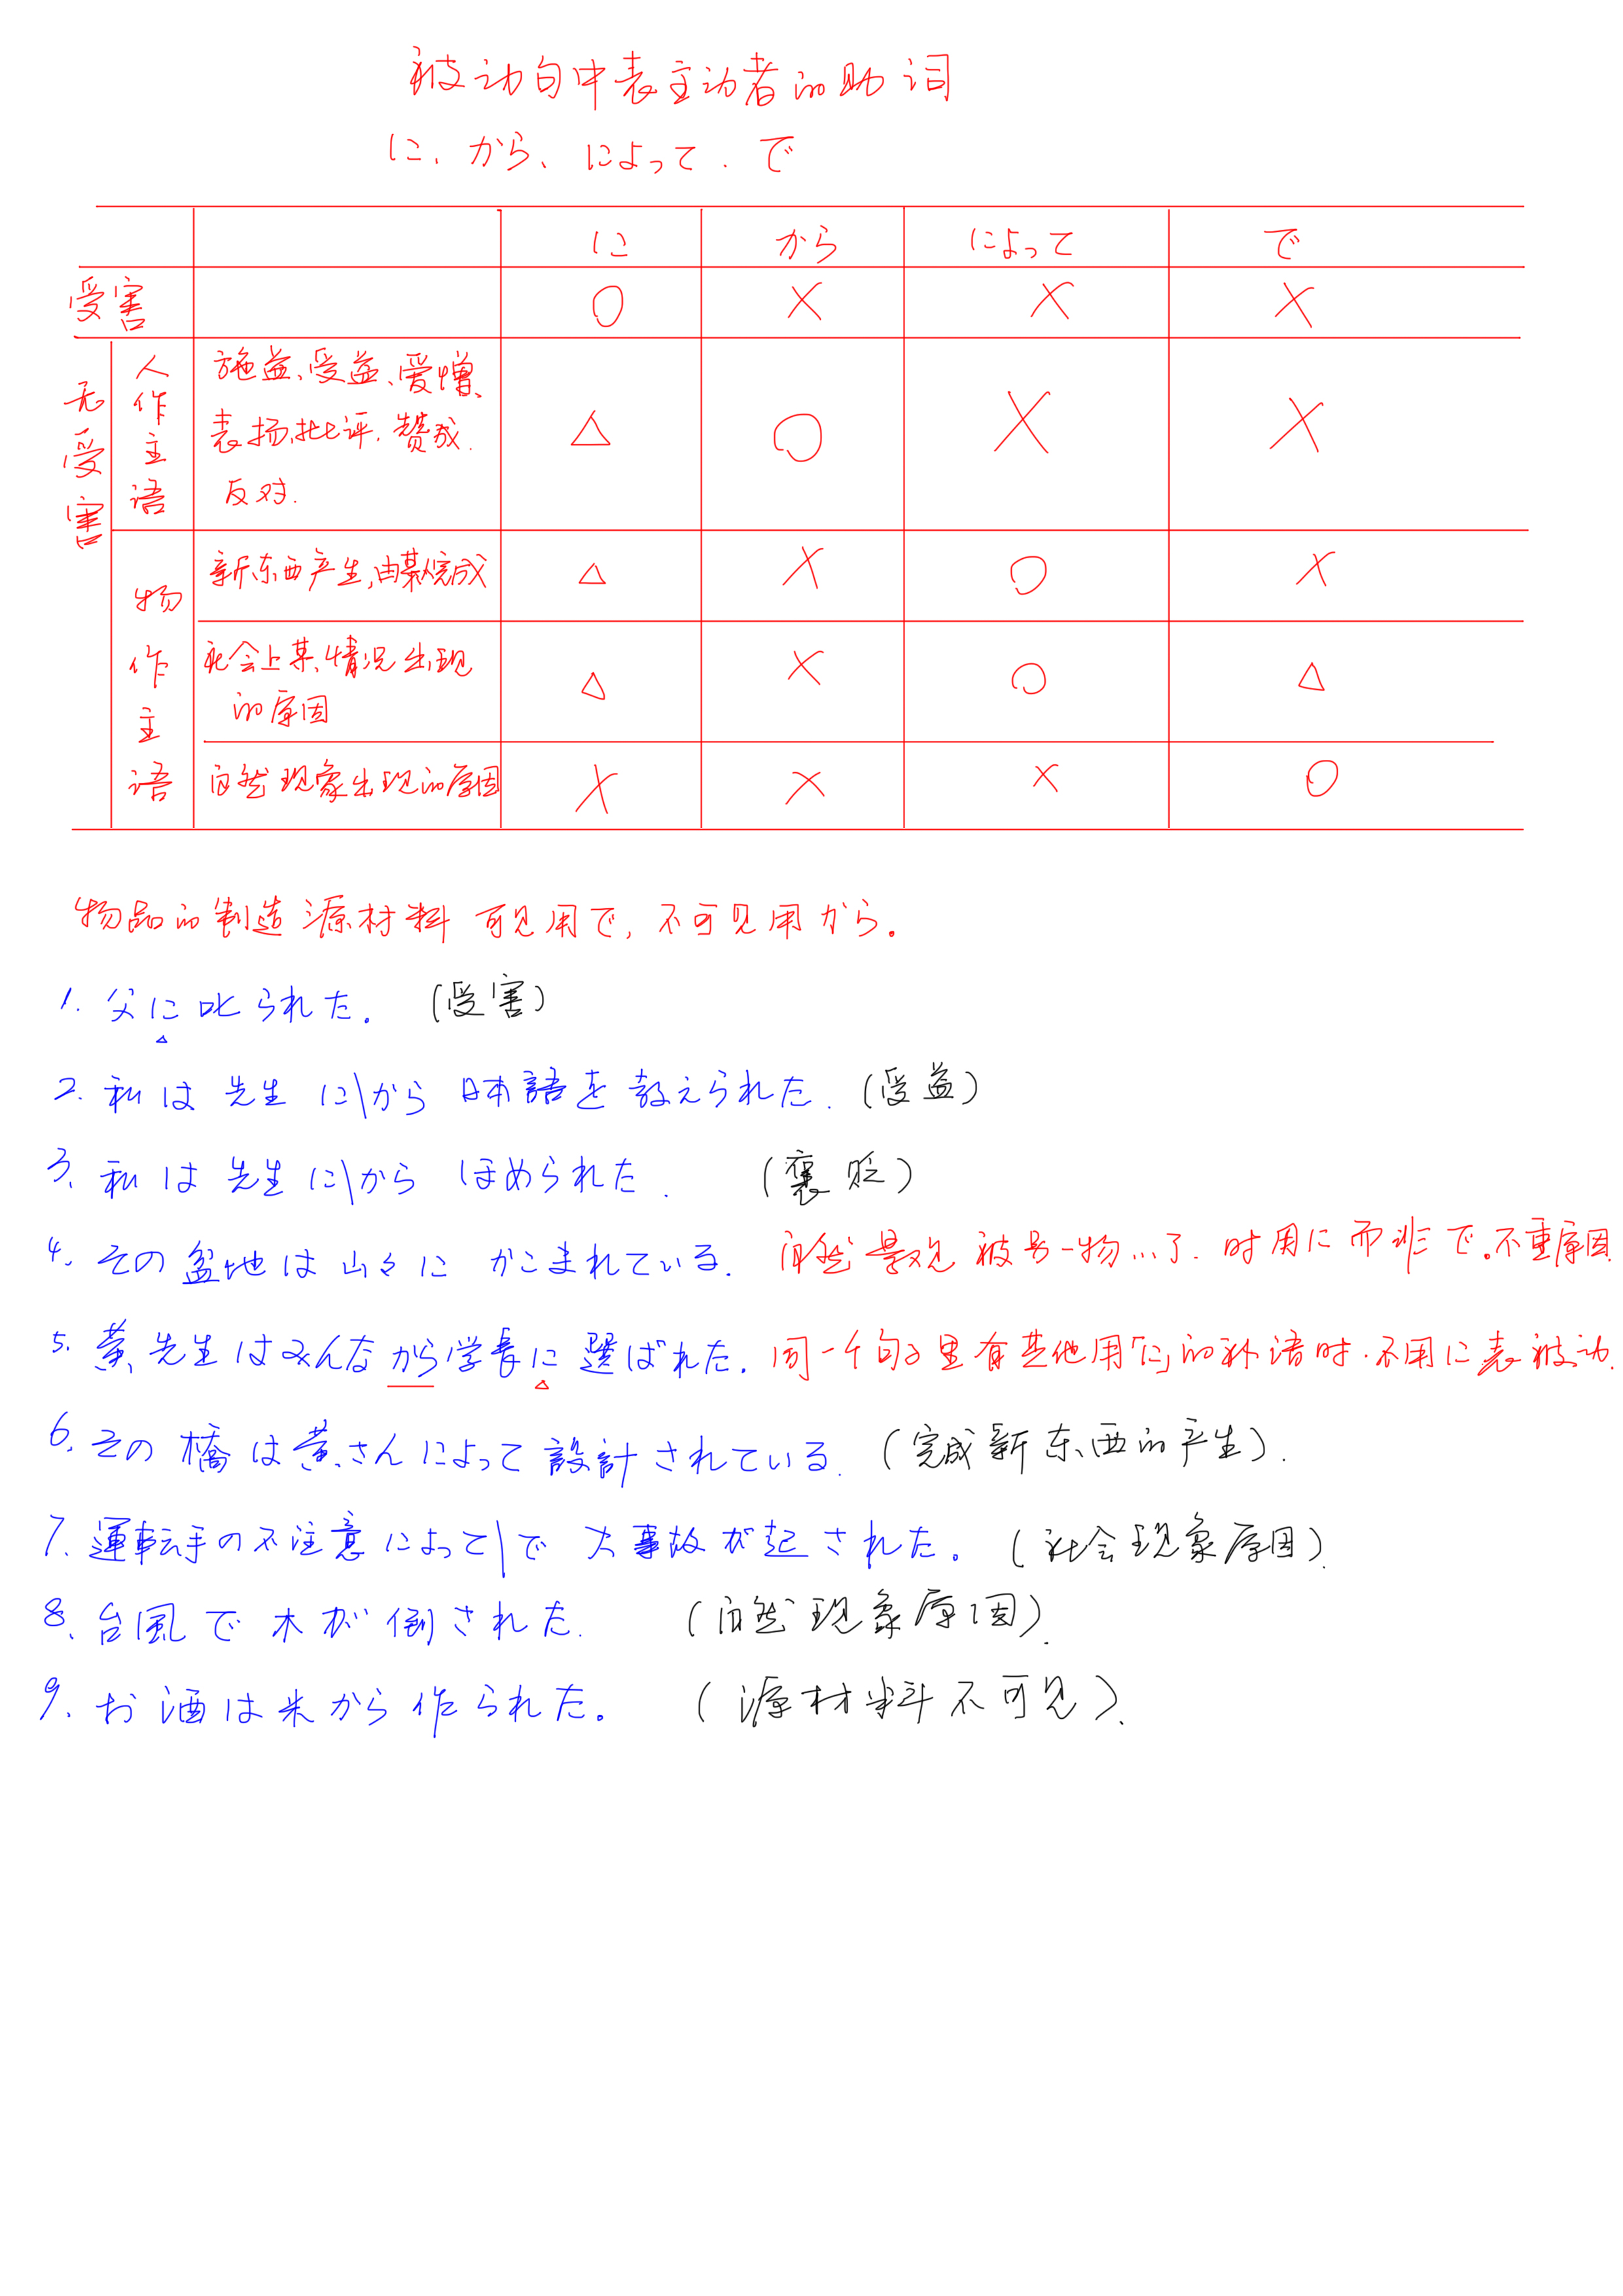 被动句中表主动者的助词
に、から、によって、で
に から によって で
受害 ○ × × ×
无受害
人作主语
施益、受益、爱憎、
表扬、批评、赞成、
反对.
△ ○ × ×
物作主语
新东西产生,由某人完成 △ × ○ ×
社会上某、情况出现
的原因
△ × ○ △
自然现象出现的原因 × × × ○
物品的制造源材料 可见用で, 不可见用から。
1. 父に叱られた。 (受害)
△
2. 私は先生に\から 日本語を教えられた. (受益)
3. 私は先生に\から ほめられた. (褒贬)
4. その盆地は山々に かこまれている. 自然景观被另一物...了.时用に而非で。不重原因.
5. 黄先生はみんなから学長に選ばれた. 同一个句子里有其他用「に」的补语时.不用に表被动.
△
6. その橋は黄さんによって設計されている. (完成新东西的产生).
7. 運転手の不注意によって\で 大事故が起された。 (社会现象原因).
8. 台風で木が倒された. (自然现象原因).
9. お酒は米から作られた。 (源材料不可见).